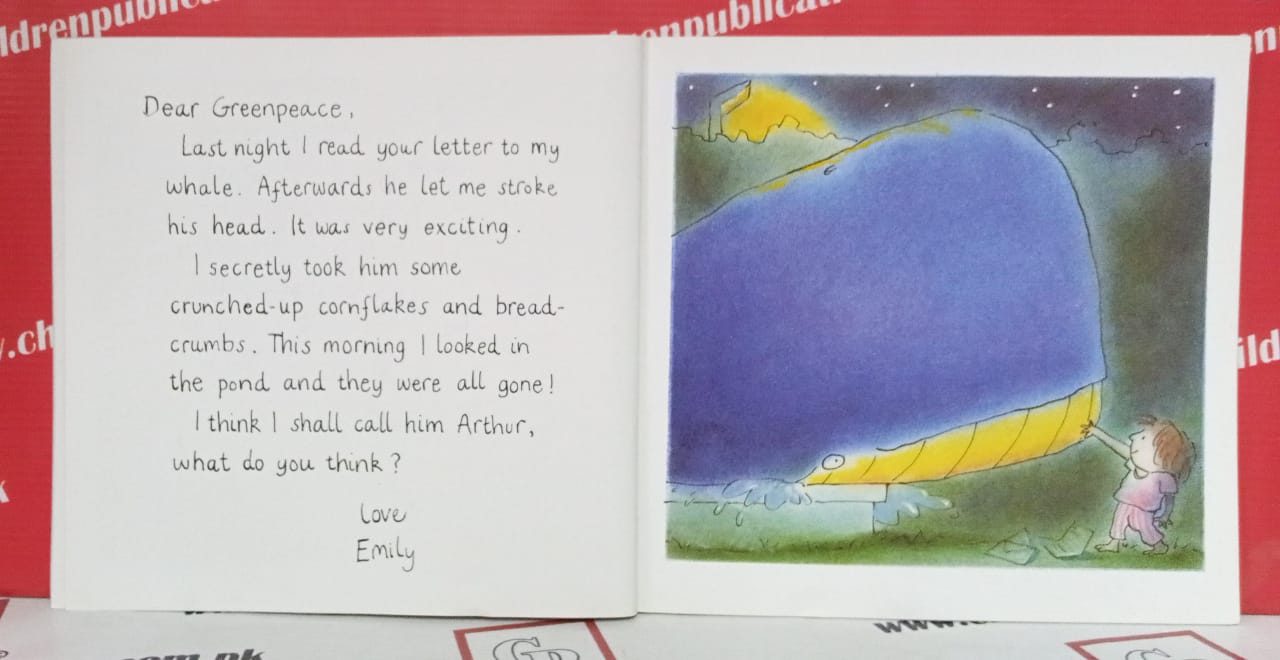 ldrenpublic
onpublicati
en
Dear Greenpeace,
Last night I read your letter to my
whale. Afterwards he let me stroke
his head. It was very exciting.
I secretly took him some
crunched-up cornflakes and bread-
crumbs. This morning I looked in
the pond and they were all gone!
I think I shall call him Arthur,
what do you think?
love
Emily
y.ch
ild
k
www.c
om.pk